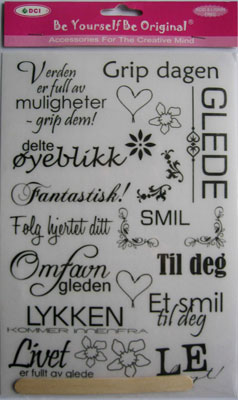 DCI
Be Yourself Be Original
Accessories For The Creative Mind
Verden
er full av
muligheter
- grip dem!
Grip dagen
GLEDE
delte
øyeblikk
Fantastisk!
Følg hjertet ditt
SMIL
Omfavn
gleden
Til deg
Et smil
til deg
LYKKEN
KOMMER INNENFRA
Livet
er fullt av glede
LE